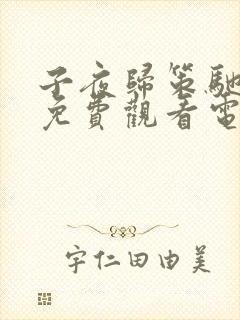 子夜歸策馳
免費觀看電
宇仁田由美